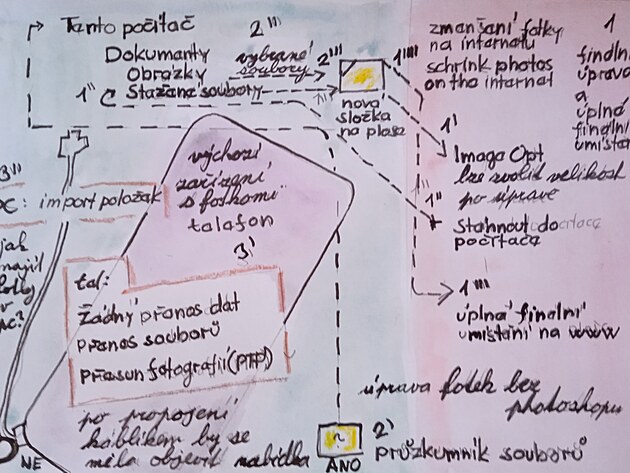 Tento počítač
Dokumenty
Obrázky
Stažené soubory
vybrané
soubory
2'''
2'''
1''
1''
1''''
nová
složka
na ploše
zmenšení fotky
na internetu
schrink photos
on the internet
1
finální
úprava
a
úplná
finální
umístě
1'
Image Opt
lze zvolit velikost
po úpravě
1''
Stáhnout do
počítače
1''''
úplná finální
umístění na www
3''
PC: import položek
jak
najít
fotky
v
PC?
výchozí
zařízení
s fotkami..
telefon
3'
tel:
Žádný přenos dat
Přenos souborů
Přesun fotografií (PTP)
po propojení
káblíkem by se
měla objevit nabídka
NE
ANO
2'
průzkumník souborů
úprava fotek bez
photoshopu